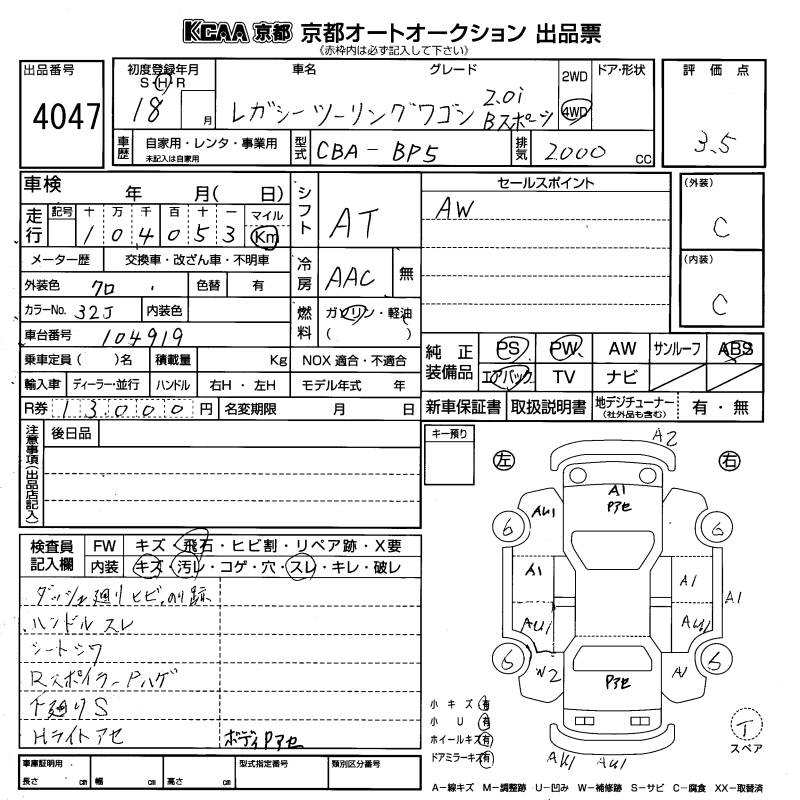 KCAA 京都 京都オートオークション 出品票
《赤枠内は必ず記入して下さい》
出品番号
4047
初度登録年月
S・H・R
18 月
車名 グレード
レガシーツーリングワゴン 2.0i
Bスポーツ
2WD
4WD
ドア・形状
評価点
3.5
車歴
自家用・レンタ・事業用
未記入は自家用
型式
CBA-BP5
排気
2000 CC
車検 年 月( 日)
走行
記号 十 万 千 百 十 一 マイル
104053 Km
シフト
AT
セールスポイント
AW
(外装)
C
(内装)
C
メーター歴 交換車・改ざん車・不明車
冷房
AAC 無
外装色 クロ 色替 有
カラーNo. 32J 内装色
燃料
ガソリン・軽油
( )
車台番号 104919
乗車定員( )名 積載量 Kg NOX 適合・不適合
輸入車 ディーラー・並行 ハンドル 右H・左H モデル年式 年
R券 13000円 名変期限 月 日
純正装備品
PS PW AW サンルーフ ABS
エアバック TV ナビ
新車保証書 取扱説明書 地デジチューナー
(社外品も含む)
有・無
注意事項(出品店記入)
後日品
キー預り
左 右
A2
A1
Pアセ
AU1
6 6
A1 A1
A1
AU1 AU1
6 5
W2 A1
Pアセ
AU1 AU1
検査員記入欄
FW キズ・飛石・ヒビ割・リペア跡・X要
内装 キズ・汚レ・コゲ・穴・スレ・キレ・破レ
ダッシュ廻りヒビ、のり跡
ハンドルスレ
シートシワ
RスポイラーPハゲ
下廻りS
Hライトアセ
ボディPアセ
小キズ 有
小U 有
ホイールキズ 有
ドアミラーキズ 有
T
スペア
車庫証明用 型式指定番号 類別区分番号
長さ cm 幅 cm 高さ cm
A-線キズ M-調整跡 U-凹み W-補修跡 S-サビ C-腐食 XX-取替済